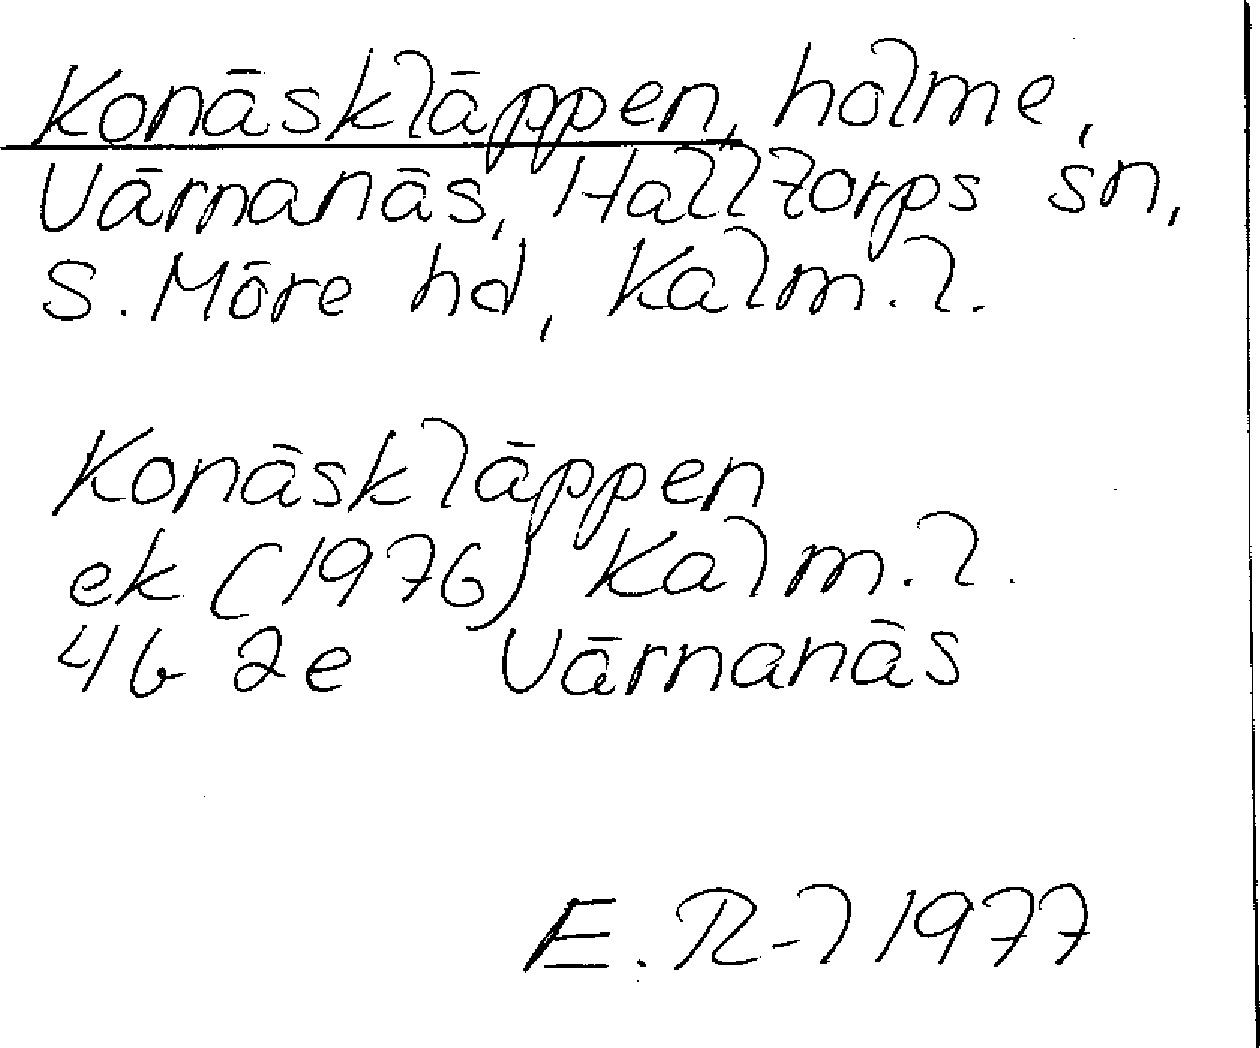 Konäskläppen, holme,
Värnanäs, Halltorps sn,
S. Möre hd, Kalm. l.
Konäskläppen
ek (1976) Kalm. l.
4G 2e Värnanäs
E. R-l 1977